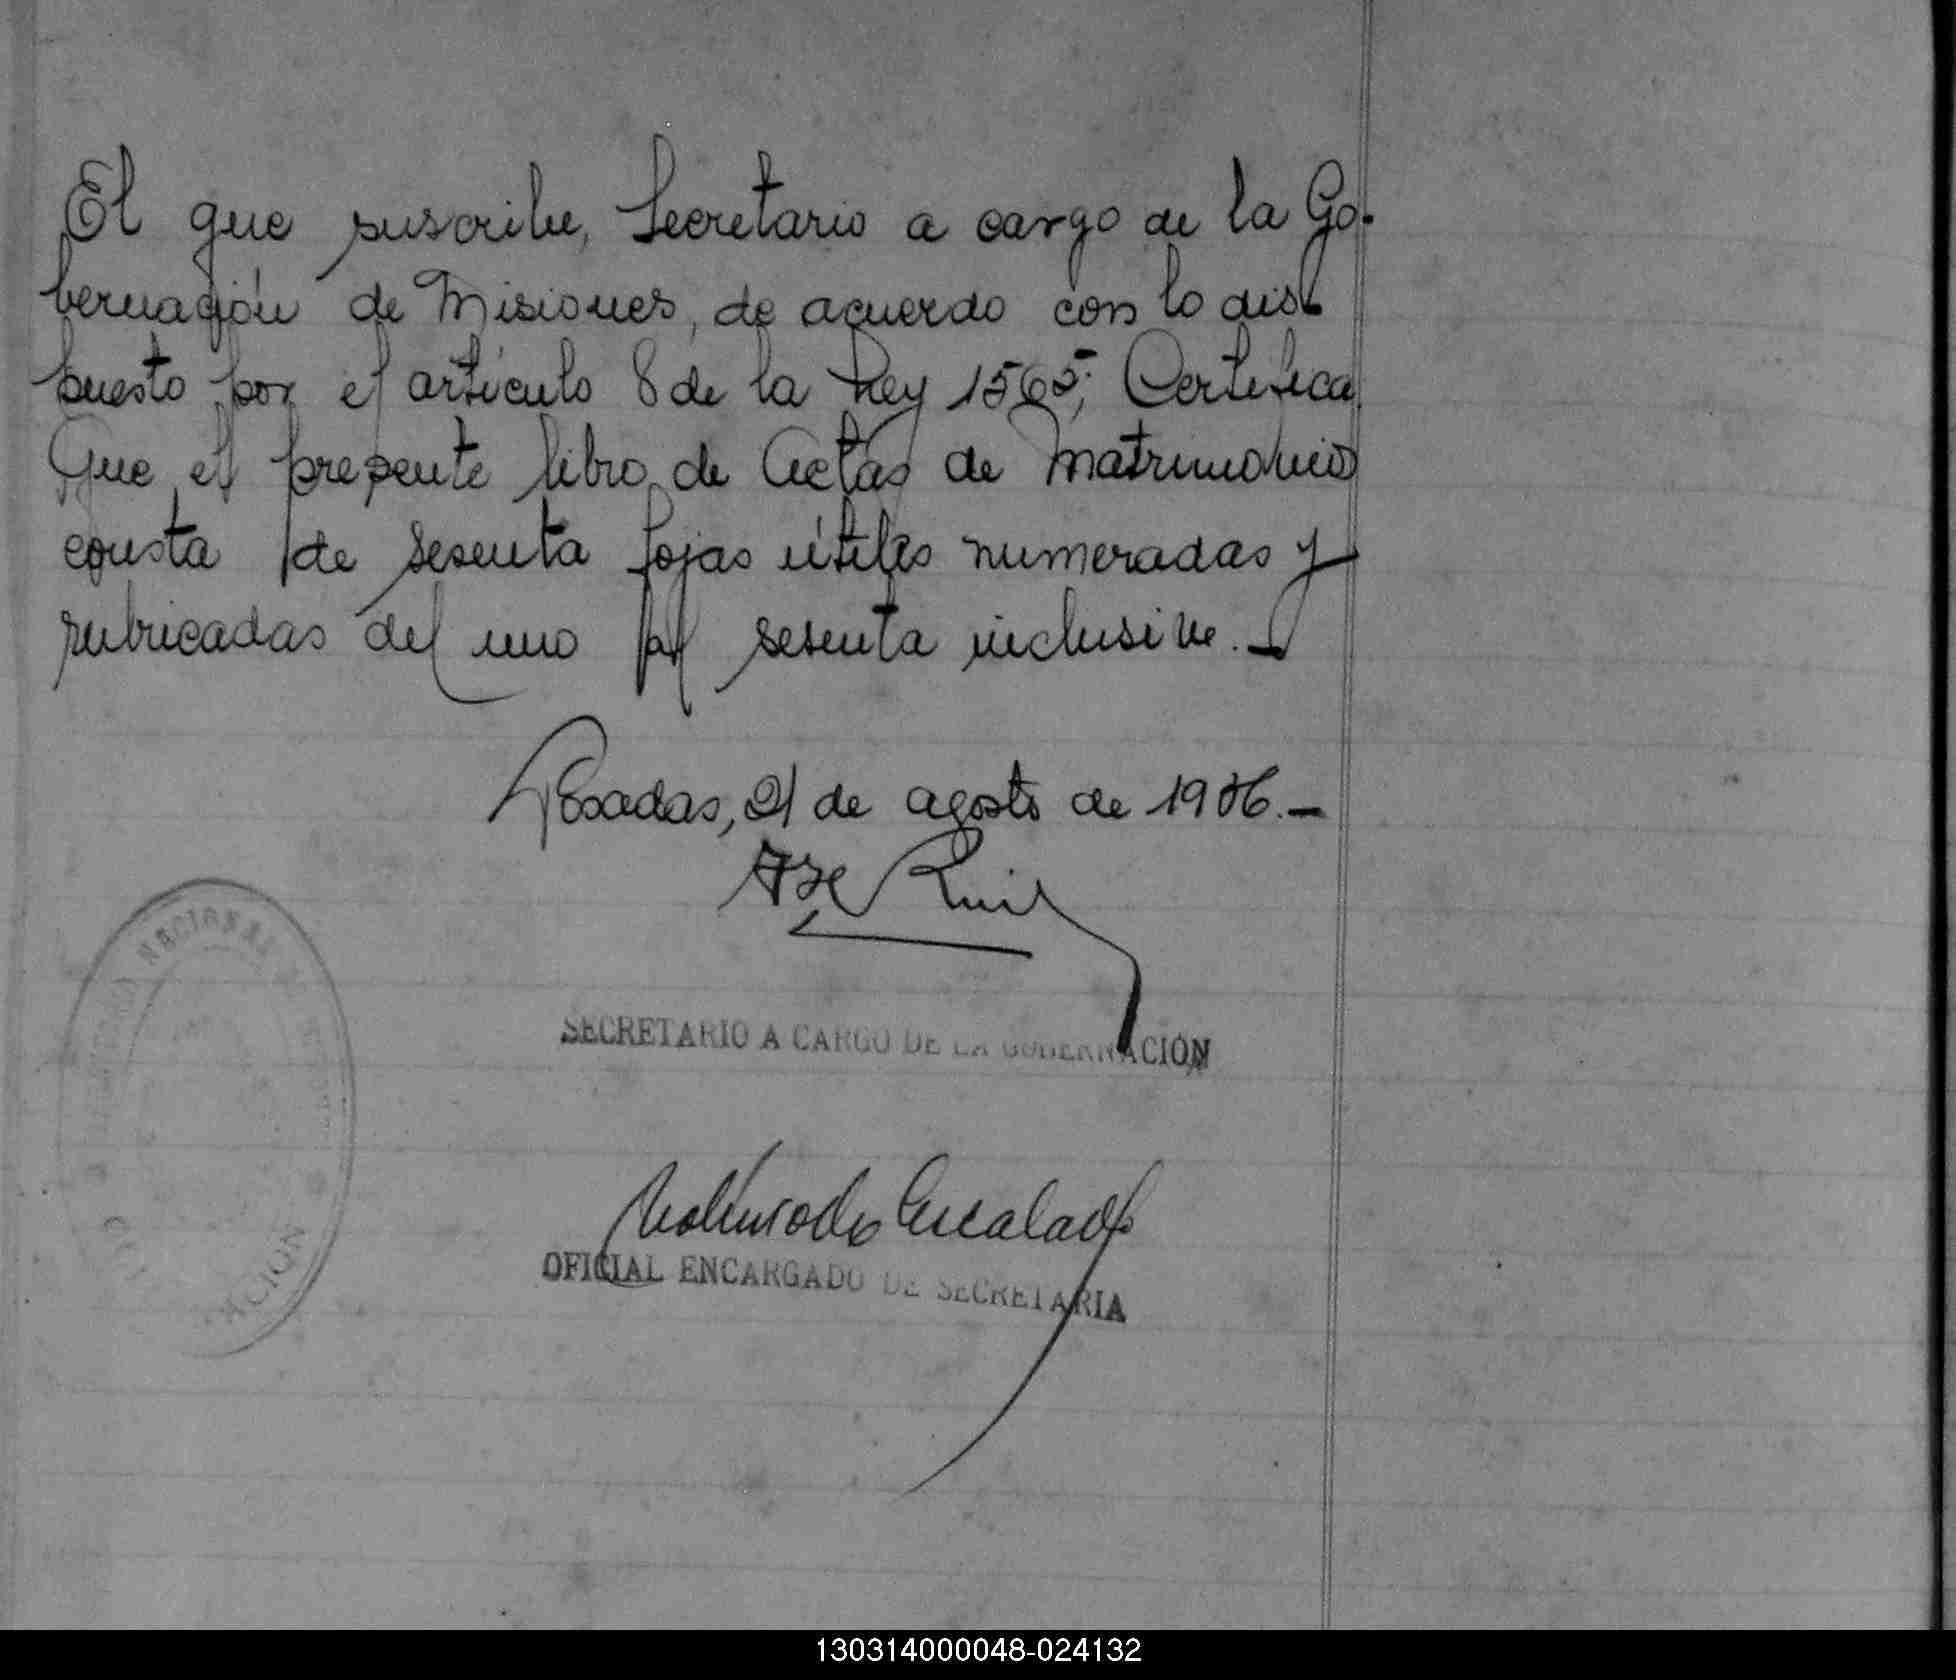 El que suscribe, Secretario a cargo de la Go-
bernación de Misiones, de acuerdo con lo dis-
puesto por el artículo 8 de la Ley 1565; Certifica
Que el presente libro de Actas de Matrimonio
consta de sesenta fojas útiles numeradas y
rubricadas del uno al sesenta inclusive.-
Posadas, 21 de agosto de 19 6.-
Ruiz
SECRETARIO A CARGO DE LA GOBERNACIÓN
Escalada
OFICIAL ENCARGADO DE SECRETARIA
NACIONAL
130314000048-024132